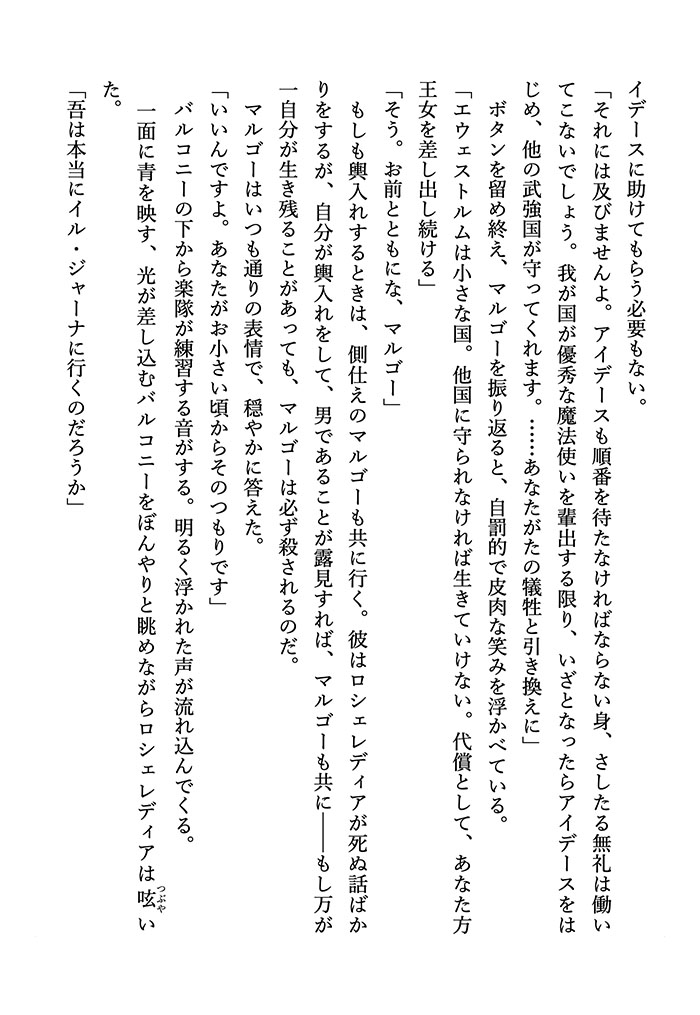 イデースに助けてもらう必要もない。
「それには及びませんよ。アイデースも順番を待たなければならない身、さしたる無礼は働い
てこないでしょう。我が国が優秀な魔法使いを輩出する限り、いざとなったらアイデースをは
じめ、他の武強国が守ってくれます。……あなたがたの犠牲と引き換えに」
ボタンを留め終え、マルゴーを振り返ると、自罰的で皮肉な笑みを浮かべている。
「エウェストルムは小さな国。他国に守られなければ生きていけない。代償として、あなた方
王女を差し出し続ける」
「そう。お前とともにな、マルゴー」
もしも輿入れするときは、側仕えのマルゴーも共に行く。彼はロシェレディアが死ぬ話ばか
りをするが、自分が輿入れをして、男であることが露見すれば、マルゴーも共に――もし万が
一自分が生き残ることがあっても、マルゴーは必ず殺されるのだ。
マルゴーはいつも通りの表情で、穏やかに答えた。
「いいんですよ。あなたがお小さい頃からそのつもりです」
バルコニーの下から楽隊が練習する音がする。明るく浮かれた声が流れ込んでくる。
一面に青を映す、光が差し込むバルコニーをぼんやりと眺めながらロシェレディアは呟つぶやい
た。
「吾は本当にイル・ジャーナに行くのだろうか」